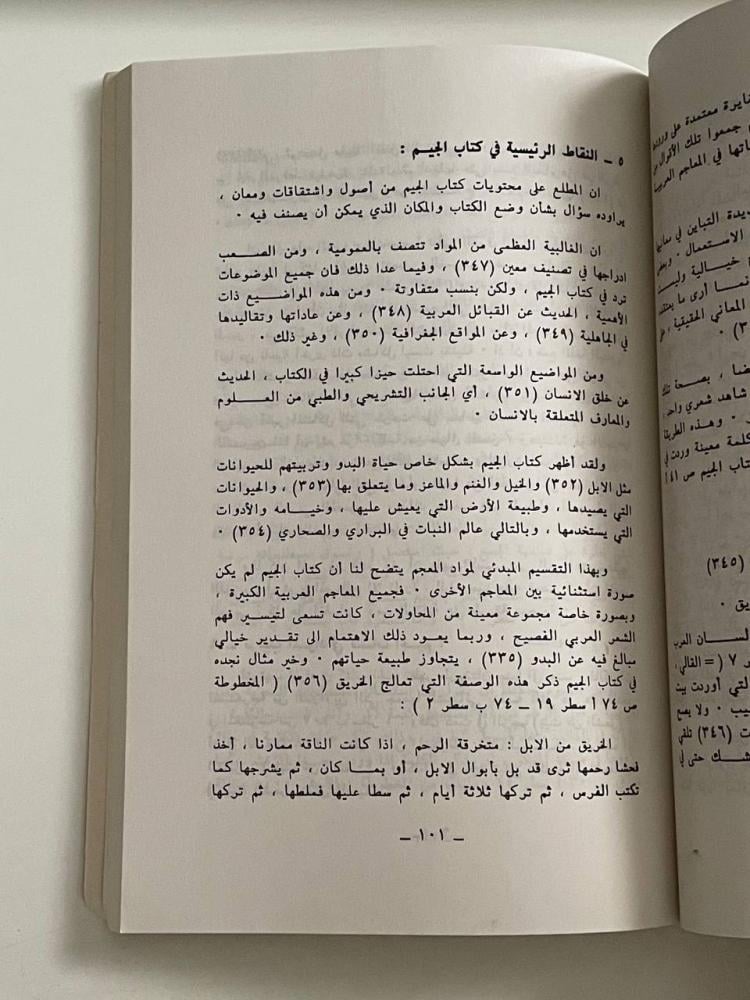 ٥ ــ النقاط الرئيسية في كتاب الجيـم :
ان المطلع على محتويات كتاب الجيم من أصول واشتقاقات ومعان ،
يراوده سؤال بشأن وضع الكتاب والمكان الذي يمكن أن يصنف فيه ٠
ان الغالبية العظمى من المواد تتصف بالعمومية ، ومن الصـعب
ادراجها في تصنيف معين (٣٤٧) ، وفيما عدا ذلك فان جميع الموضوعات
ترد في كتاب الجيم ، ولكن بنسب متفاوتة ٠ ومن هذه المواضيع ذات
الأهمية ، الحديث عن القبائل العربية (٣٤٨) ، وعن عاداتها وتقاليدها
في الجاهلية (٣٤٩) ، وعن المواقع الجغرافية (٣٥٠) ، وغير ذلك ٠
ومن المواضيع الواسعة التي احتلت حيزا كبيرا في الكتاب ، الحديث
عن خلق الانسان (٣٥١) ، أي الجانب التشريحي والطبي من العـلوم
والمعارف المتعلقة بالانسان ٠
ولقد أظهر كتاب الجيم بشكل خاص حياة البدو وتربيتهم للحيوانات
مثل الابل (٣٥٢) والخيل والغنم والماعز وما يتعلق بها (٣٥٣) ، والحيوانات
التي يصيدها ، وطبيعة الأرض التي يعيش عليها ، وخيـامه والأدوات
التي يستخدمها ، وبالتالي عالم النبات في البراري والصحاري (٣٥٤) ٠
وبهذا التقسيم المبدئي لمواد المعجم يتضح لنا أن كتاب الجيم لم يكن
صورة استثنائية بين المعاجم الأخرى ٠ فجميع المعاجم العربية الكبيرة ،
وبصورة خاصة مجموعة معينة من المحاولات ، كانت تسعى لتيسير فهم
الشعر العربي الفصيح ، وربما يعود ذلك الاهتمام الى تقدير خيالي
مبالغ فيه عن البدو (٣٣٥) ، يتجاوز طبيعة حياتهم ٠ وخير مثال نجده
في كتاب الجيم ذكر هذه الوصفة التي تعالج الخريق (٣٥٦) ( المخطوطة
ص ٧٤ أ سطر ١٩ ــ ٧٤ ب سطر ٢ ) :
الخريق من الابل : متخرقة الرحم ، اذا كانت الناقة ممارنا ، أخذ
فحشا رحمها ثرى قد بل بأبوال الابل ، أو بمـا كان ، ثم يشرجها كما
تكتب الفرس ، ثم تركها ثلاثة أيام ، ثم سطا عليها فملطها ، ثم تركها
ــ ١٠١ ــ
معتمدة على
جمعوا تلك الأقوال
في المعاجم العربية
التباين في
الاستعمال ٠
خيالية
أرى ما
المعاني الحقيقية ،
، بصحة تلك
شاهد شعري واحد
٠ وهذه
كلمة معينة وردت في
الجيم ص
(٣٤٥)
لسـان العرب
٧ ( = القالي ،
التي أوردت بيت
٠ ولا يصح
(٣٤٦) تلقي
حتى في